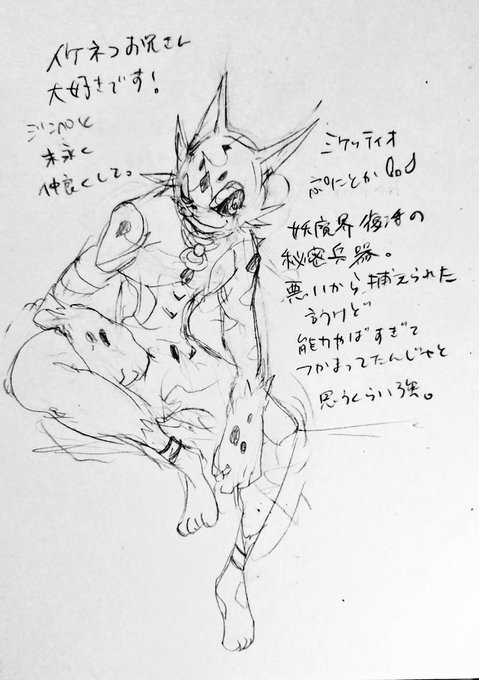 イケネコお兄さん
大好きです!
ジンペと
末永く
仲良くして。
ミケッティオ
ぷにとか
妖魔界復活の
秘密兵器。
悪いから捕えられた
言うけど
能力やばすぎて
つかまってたんじゃと
思うくらい強。